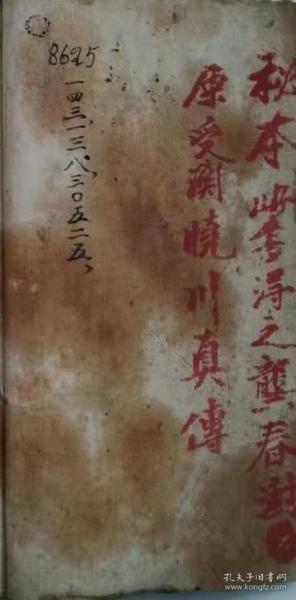 秘本此書得之龔春
原受關曉川真傳
8625
一四三一三八三〇五二五、
孔夫子旧书网
www.kongfz.com